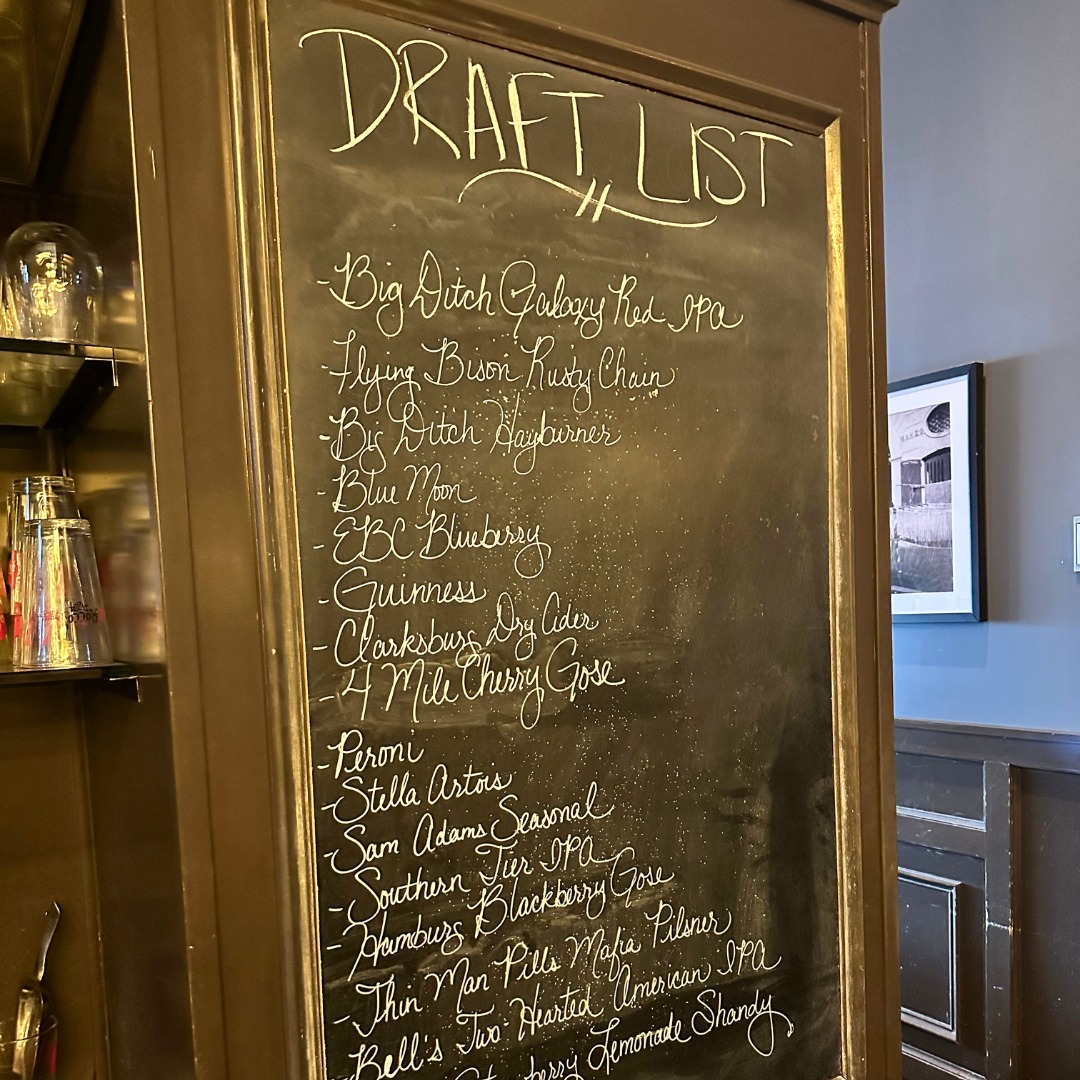 DRAFT LIST
- Big Ditch Galaxy Red IPA
- Flying Bison Rusty Chain
- Big Ditch Hayburner
- Blue Moon
- EBC Blueberry
- Guinness
- Clarksburg Dry Cider
- 4 Mile Cherry Gose
- Peroni
- Stella Artois
- Sam Adams Seasonal
- Southern Tier IPA
- Hamburg Blackberry Gose
- Thin Man Pills Mafia Pilsner
- Bell's Two-Hearted American IPA
Lemonade Shandy